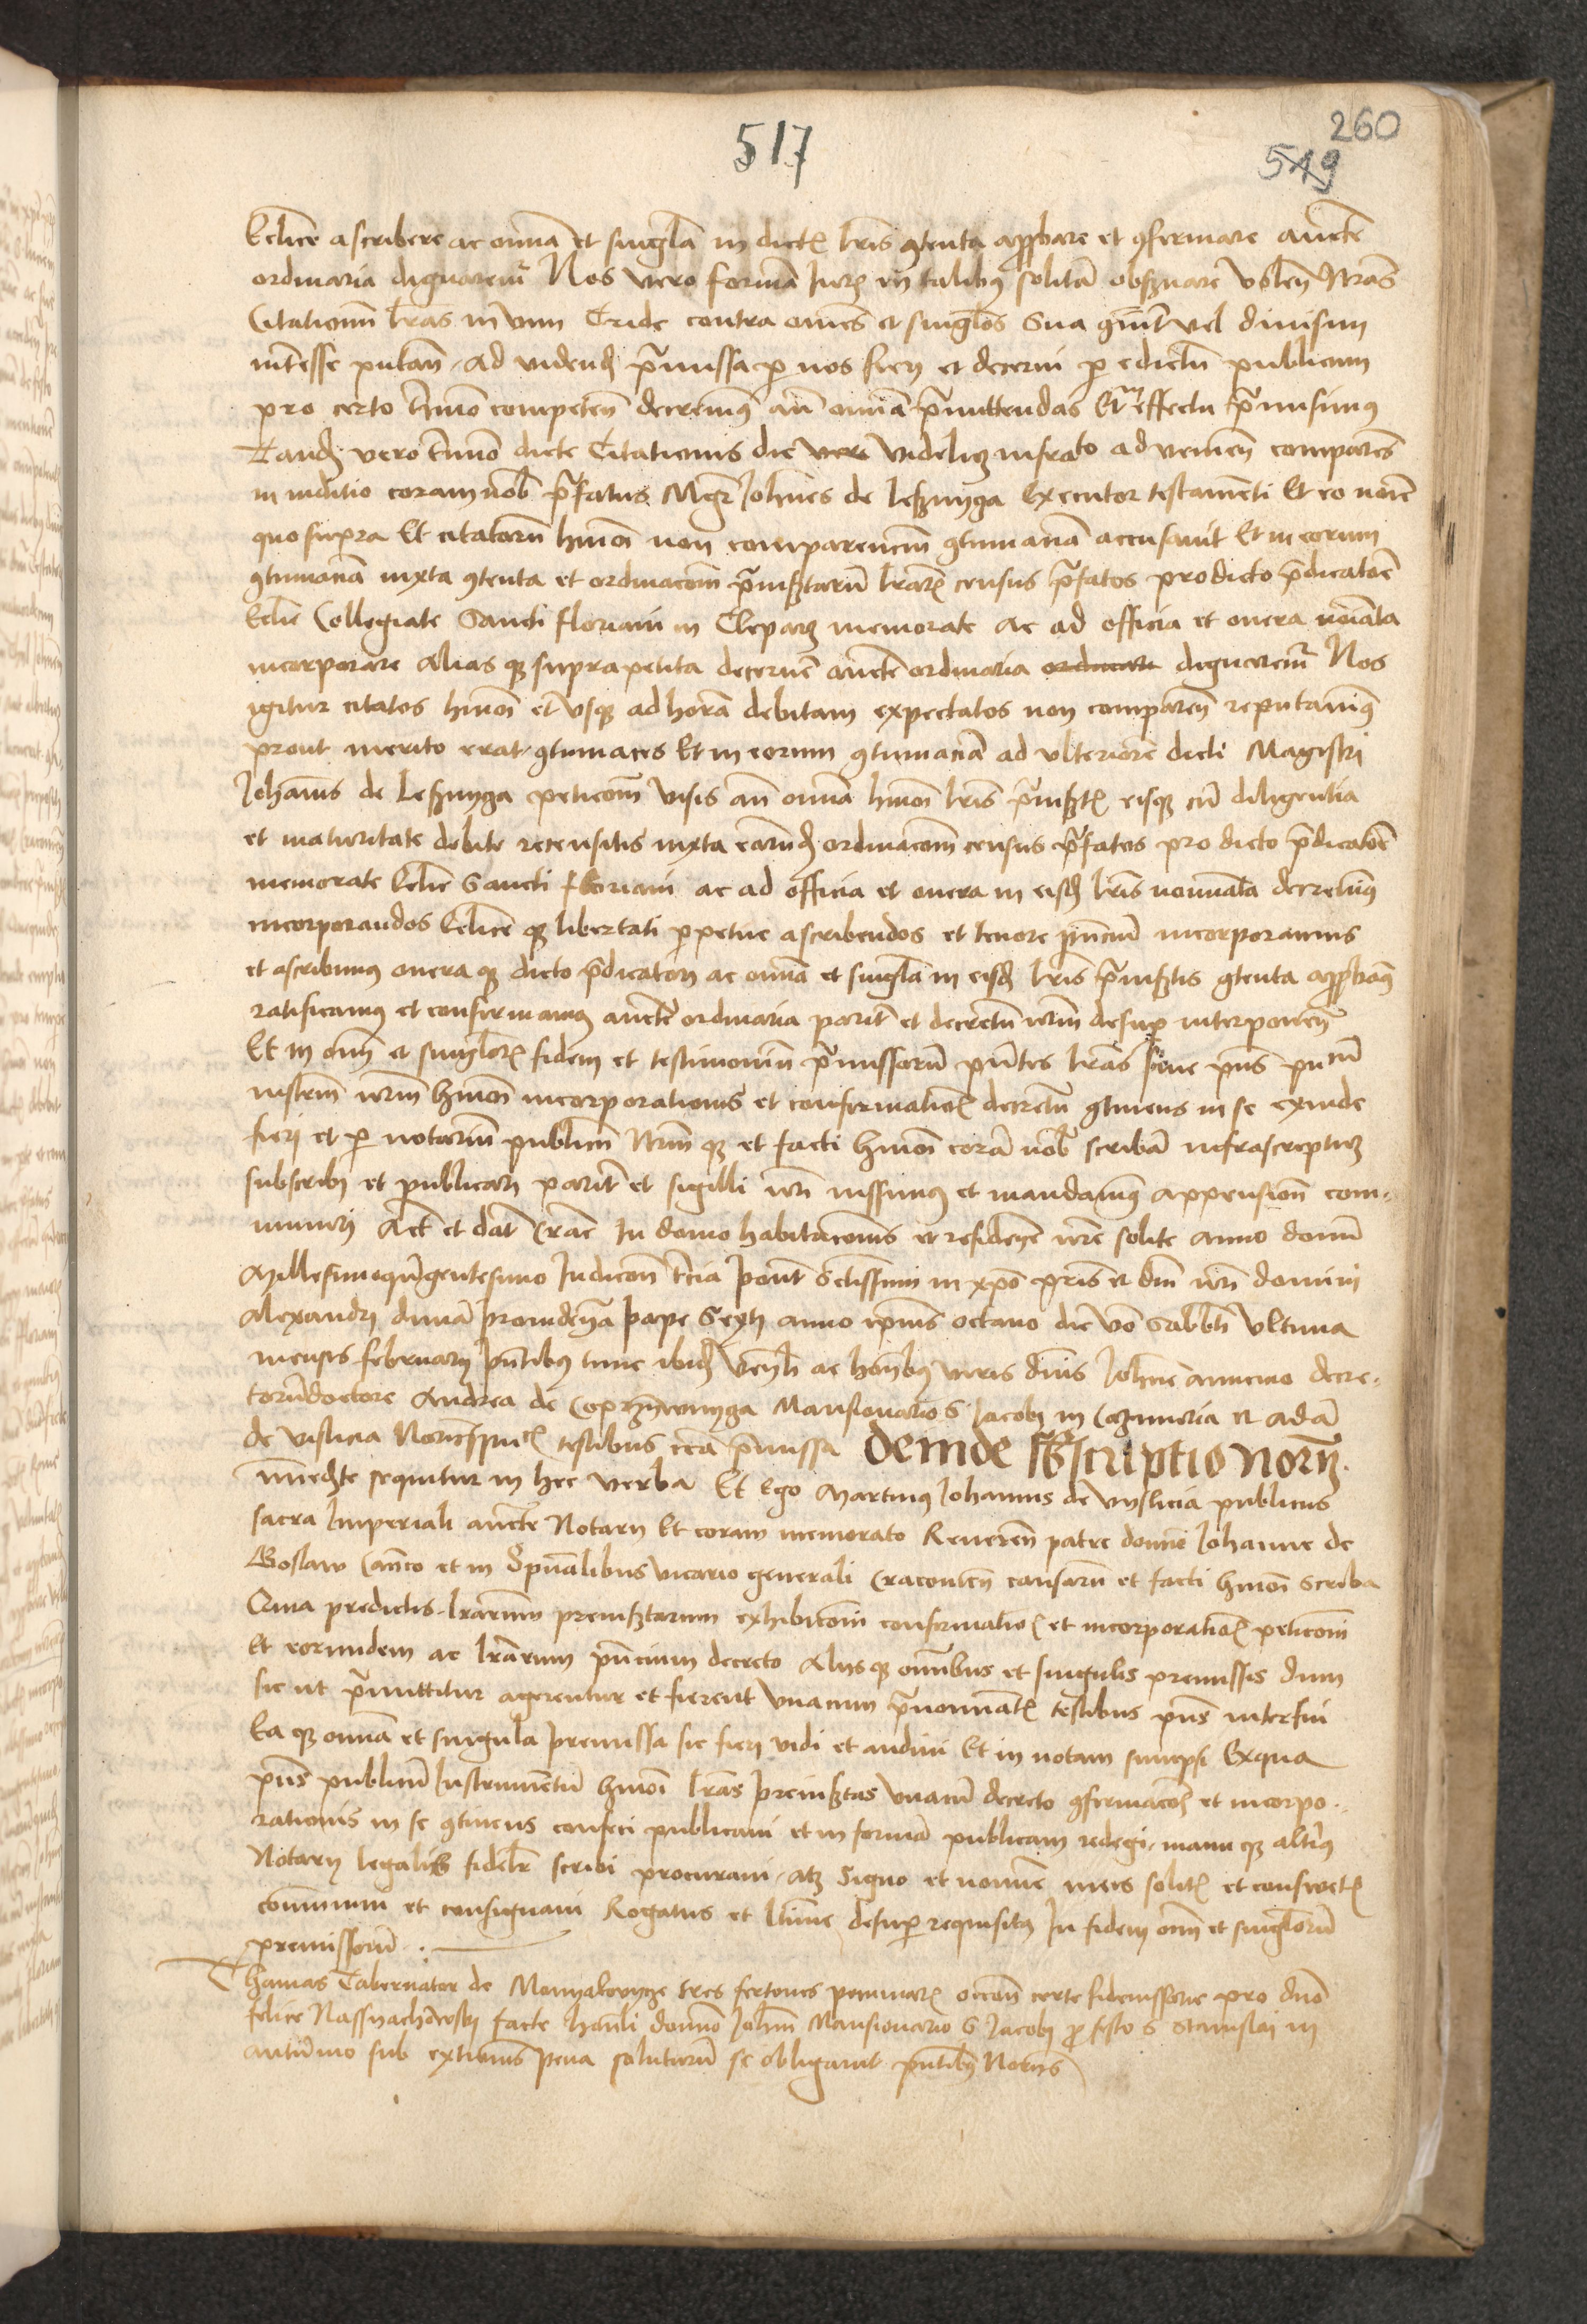 517
260
549
Ecclie ascribere ac omnia et singla in dictis lris contenta approbare et confirmare aucte
ordinaria dignaremur Nos vero formam Juris in talibus solitam observare volen nras
Citationum lras in vim Cride contra omnes et singlos sua comunit vel divisim
interesse putan ad videnda premissa per nos fieri et decerni per edictum publicum
pro certo termino competen decrevimus ante omnia premittendas effectu premisimus
Tandem vero termino dicte Citationis die vero videlicet infrato advenien comparens
in iuditio coram nob prefatus Mgr Johnes de leznyga executor testamenti Et eo noie
quo supra Et citatorum hmoi non comparencium contumaciam accusavit Et in eorum
contumaciam iuxta contenta et ordinacoem preinsertarum lrarum census prefatos pro dicto predicatore
Ecclie Collegiate Sancti floriani in Cleparz memorate ac ad officia et onera noiata
incorporare alias que supra petita decernere aucte ordinaria dignaremur Nos
igitur citatos hmoi et usque ad horam debitam expectatos non comparen reputavimus
prout merito erat contumaces Et in eorum contumaciam ad ulteriorem dicti Magistri
Johanis de leznyga peticoem visis ante omnia hmoi lris preinsertis eisque cum diligentia
et maturitate debite recensitis iuxta earundem ordinacoem census prefatos pro dicto predicatore
memorate Ecclie Sancti floriani ac ad officia et onera in eisdem lris nominata decrevimus
incorporandos Ecclie que libertati perpetue ascribendos et tenore pncium incorporamus
et ascribimus onera que dicto predicatori ac omnia et singla in eisdem lris preinsertis contenta approbamus
ratificamus et confirmamus aucte ordinaria pariter et decretum nrum desuper interponen
Et in omnium et singlorum fidem et testimonium premissorum pntes lras sive pns pucum
instrum nrum hmoi incorporationis et confirmationis decretum continens in se exinde
fieri et per notarium publicum nrum que et facti hmoi coram nob scribam infrascriptum
subscribi et publicari pariter et sigilli nri iussimus et mandavimus appension com-
muniri Act et dat Crac In domo habitaconis et residencie nre solite anno domini
Millesimoquingentesimo Indicone tercia pont sctissimi in xpo pris et dni nri domini
Alexandri divina providencia pape Sexti anno ipsius octavo die vo Sabbti ultima
mensis february pntibus tunc ibidem venlibus ac honlibus viris dnis Johne amicino decre-
torum doctore Andrea de Coprzywnyga Mansionario S Jacobi in Cazimiria et adam
de vislicia testibus circa premissa deinde subscriptio norii
immediate sequitur in hec verba Et Ego Martinus Johannis de vyslicia publicus
sacra Imperiali aucte Notarius Et coram memorato Reveren patre domino Johanne de
Goslaw Canco et in Spualibus vicario generali Cracovien causarum et facti hmoi scriba
Quia predictis lrarum preinsertarum exhibicoem confirmationis et incorporationis peticoem
Et eorundem ac lrarum pncium decreto aliisque omnibus et singulis premissis dum
sic ut premittitur agerentur et fierent unacum prenominatis testibus pns interfui
Ea que omnia et singula premissa sic fieri vidi et audivi Et in notam sumpsi Ex qua
pns publicum Instrumentum hmoi lras preinsertas unacum decreto confirmacois et incorpo-
rationis in se continens confeci publicavi et in formam publicam redegi manu que alterius
Notary legalis fideliter scribi procuravi atque Signo et nomine meis solitis et consuetis
communivi et consignavi Rogatus et desuper requisitus In fidem omnium et singlorum
premissorum
Thomas Tabernator de tres fertones pecuniarum occon certe fideiussorie pro dno
felice facte honli domino Johni Mansionario S Jacobi pro festo S Stanislai in
autumno sub extionis pena soluturum se obligavit pntibus